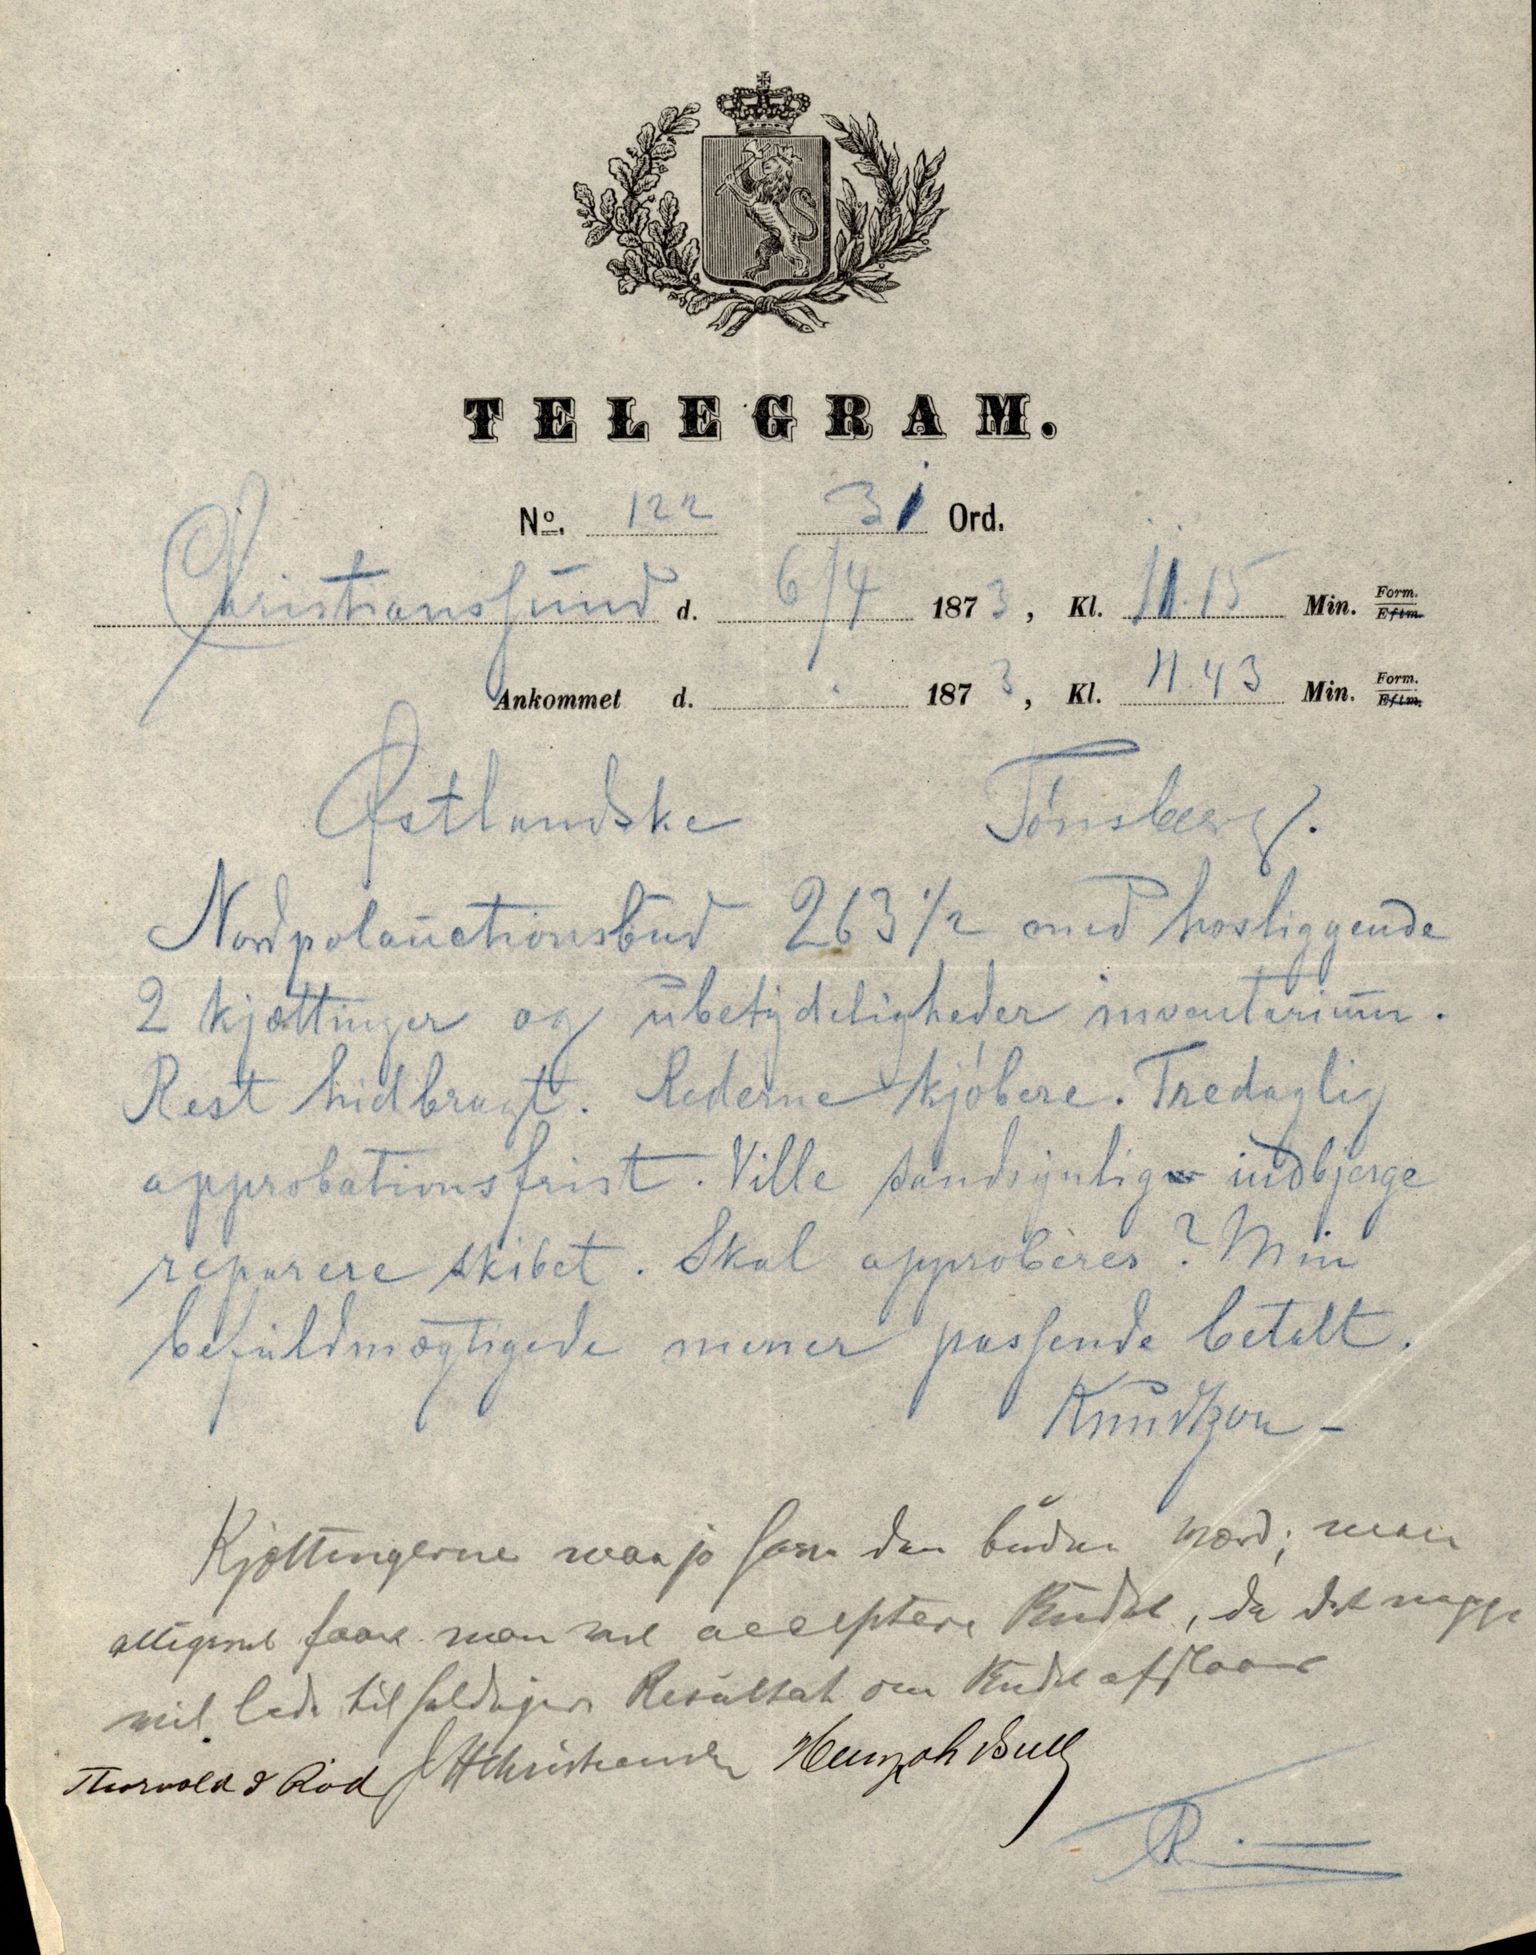 TELEGRAM.
No. 122 31 Ord.
Christianssund d. 6/4 1873, Kl. 11.15 Min. Form. Eftm.
Ankommet d. 1873, Kl. 11.43 Min. Form. Eftm.
Østlandske Tönsberg.
Nordpolauctionsbud 263 1/2 med hosliggende
2 kjættinger og übetydeligheder inventarium.
Rest hidbragt. Rederne kjøbere. Tredaglig
approbationsfrist. Ville sandsynlig indbjerge
reparere skibet. Skal approberes? Min
befuldmægtigede mener passende betalt.
Knudtzon -
Kjættingerne maa jo den buden værd; man
alligevel faar man vel acceptere Budet, da det neppe
vil lede til Resultat om Budet afslaaes
Thorvald Röd JH Christiansen Bull